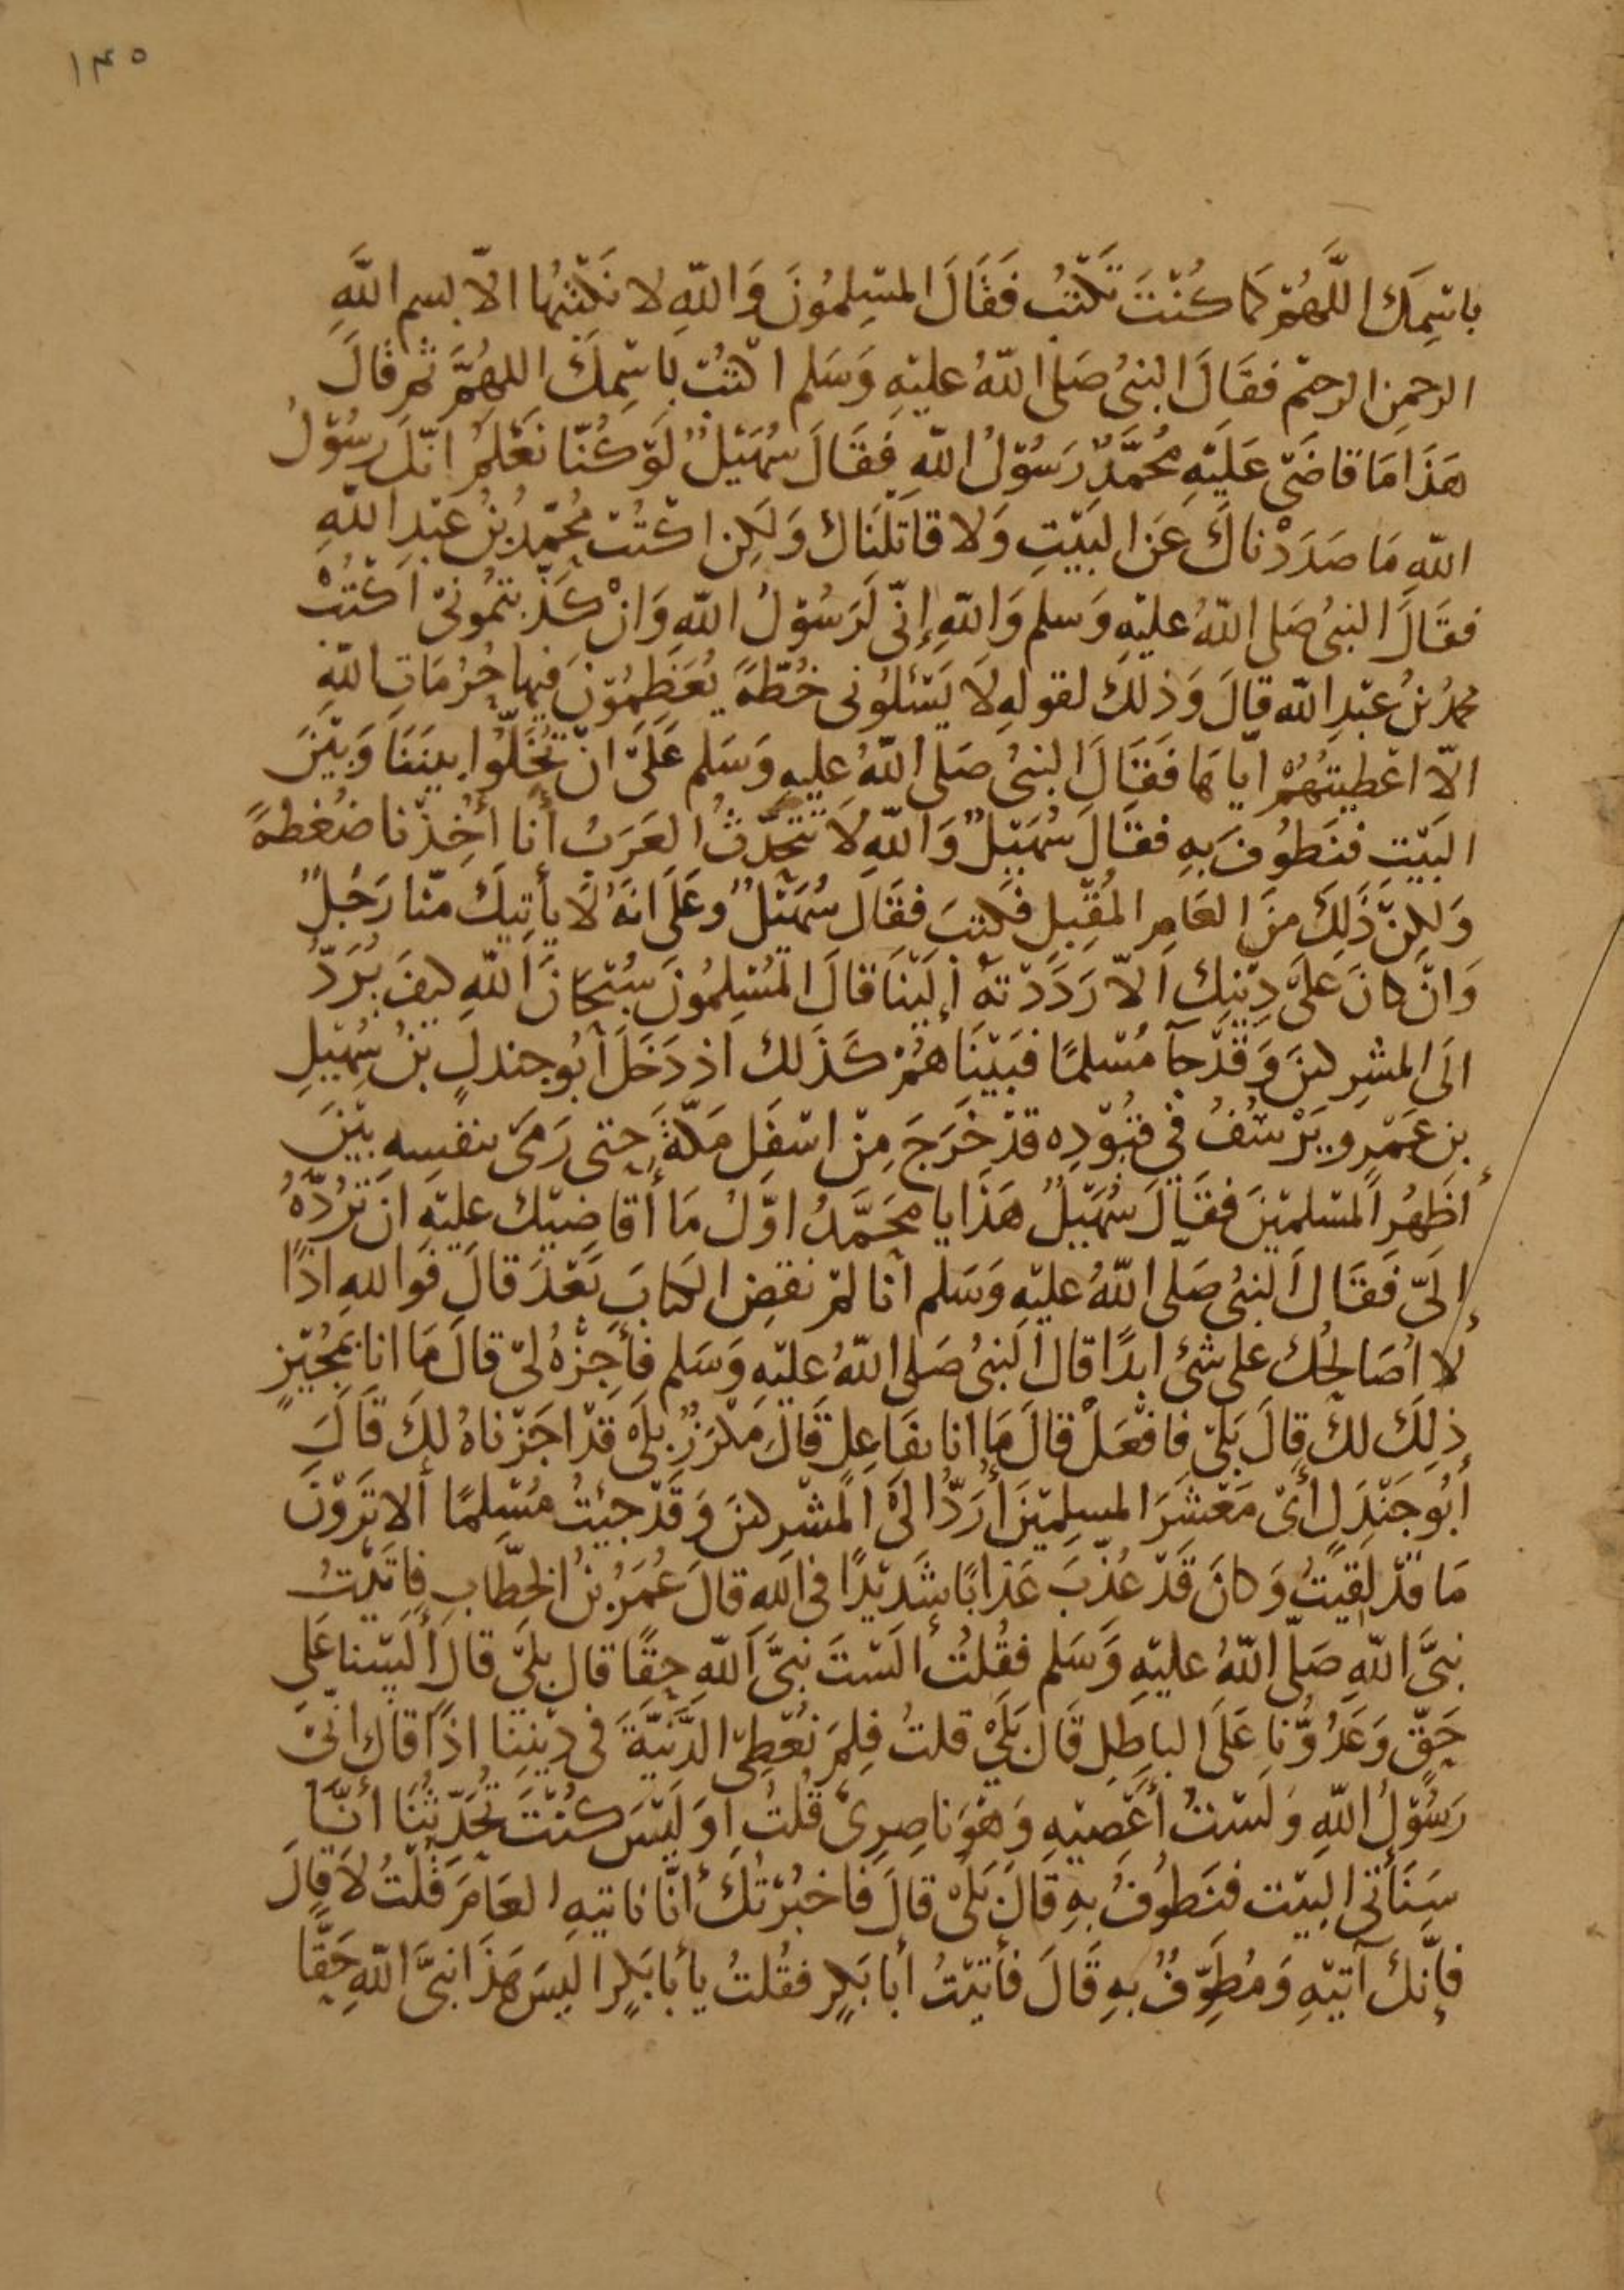 ١٣٥
باسْمِكَ اللَّهُمَّ كَمَا كُنْتَ تَكْتُبُ فَقَالَ المسْلِمُونَ وَاللّهِ لا نَكْتُبُهَا الاّ بسم اللَّهِ
الرحمنِ الرحيم فقَالَ النبىُ صَلى اللّهُ عليْهِ وَسَلم اكتُبْ بِاسْمِكَ اللهُمَّ ثمَّ قالَ
هَذَا مَا قاضَى عَلَيْهِ مُحَمَّدٌ رَسُوْلُ اللّهِ فَقَالَ سُهَيْلٌ لَوْ كُنّا نَعْلَمُ انّكَ رسُوْلُ
اللّهِ مَا صَدَدْناكَ عَنِ البَيْتِ وَلا قاتَلْنَاك وَلَكِن اكْتُبْ مُحَمّدُ بْنُ عَبْدِ اللّهِ
فقَالَ النبىُ صَلى اللّهُ عليْهِ وَسلم وَاللّهِ إِنّى لَرَسُوْلُ اللّهِ وَانْ كَذّبتمُونىْ اكْتُبْ
محمدُ بْنُ عَبْدِ اللّه قالَ وَذلكَ لقولهِ لَا يَسْئلُونى خُطّةً يُعَظِمُوْنَ فيها حُرُمَاتِ اللّهِ
الاّ اعْطيتُهُمْ ايّاهَا فَقَالَ النبىُ صَلى اللّهُ عليهِ وَسَلم عَلَى انْ تُخَلّوا بينَنَا وَبيْنَ
البَيْتِ فنَطُوْفَ بِهِ فقَالَ سُهَيْلٌ وَاللّهِ لَا تَتَحَدّثُ العَرَبُ أنا أُخِذْنا ضُغْطةً
وَلكِنْ ذَلِكَ مِنَ العَامِ المُقْبِلِ فكتبَ فقَالَ سُهَيْلٌ وعَلَى انهُ لَا يأتِيكَ منّا رَجُلٌ
وَانْ كانَ عَلىَ دِيْنِكَ الاّ رَدَدْتهُ إليْنَا قالَ المُسْلِمُونَ سُبْحَانَ اللّهِ كيفَ يُرَدُّ
الَى المشرِكينَ وَقَدْ جآ مُسْلمًا فبَيْنَا هُمْ كَذَلك اذ دَخَلَ أبُو جندلٍ بْنُ سُهَيْلِ
بنِ عَمْرٍو يَرْسُفُ فِى قيُوْدِه قدْ خَرَجَ مِنْ اسْفلِ مَكّةَ حتى رَمَى بنفسِهِ بيْنَ
أظهُرِ المسْلمينَ فقَالَ سُهَيْلٌ هَذَا يا محَمَّدُ اوّلُ مَا أُقاضيْك عليْهِ انْ تَرُدَّهُ
إلَىّ فَقَالَ النبىُ صَلى اللّهُ عليْهِ وَسَلم انا لمْ نقضِ الكتابَ بَعْدَ قالَ فوَاللهِ اذًا
لا أُصَالحُك على شئ ابدًا قال النبىُ صَلى اللّهُ عليْهِ وَسَلم فأجِزْهُ لىْ قالَ مَا انا بمُجيْزٍ
ذلِكَ لكَ قالَ بَلىْ فافْعَلْ قالَ مَا انا بفَاعِلٍ قَالَ مَكْرَزٌ بلَى قدْ اجَزْناهُ لكَ قَالَ
أبُو جَنْدَلٍ أىْ مَعْشَرَ المسلِمِيْنَ أُرَدُّ الَى المشْرِكينَ وَقَدْ جيْتُ مُسْلِمًا ألا تَرَوْنَ
مَا قدْ لَقِيْتُ وَكانَ قَدْ عُذّبَ عَذَابًا شَدِيْدًا فى اللهِ قالَ عُمَرُ بنُ الخطّابِ فاتَيْتُ
نبىَّ اللّهِ صَلّى اللّهُ عليْهِ وَسَلم فقُلْتُ ألَسْتَ نبىَّ اللّهِ حقًا قال بلَى قالَ ألَسْنا عَلى
حَقٍّ وَعَدُوُّنا عَلَى الباطلِ قَالَ بَلَىْ قلتُ فِلِمَ نُعْطِى الدَّنيَّةَ فى دِيْنِنا اذًا قالَ انّى
رَسُوْلُ اللّهِ وَلسْتُ أعْصيْهِ وَهْوَ ناصِرِىْ قُلْتُ اوَلَيْسَ كنْتَ تُحَدِّثُنَا أنَّا
سَنَأتى البيْت فنَطُوفُ بهِ قالَ بَلَى قالَ فاخبَرْتُكَ أنّا ناتيهِ العَامَ قُلْتُ لَا قالَ
فإنّكَ آتيْهِ وَمُطَوِّفٌ بهِ قَالَ فأتَيْتُ أبا بَكْرٍ فقُلتُ يأبا بَكْرٍ اليسَ هَذَا نبىَّ اللّهِ حَقًّا